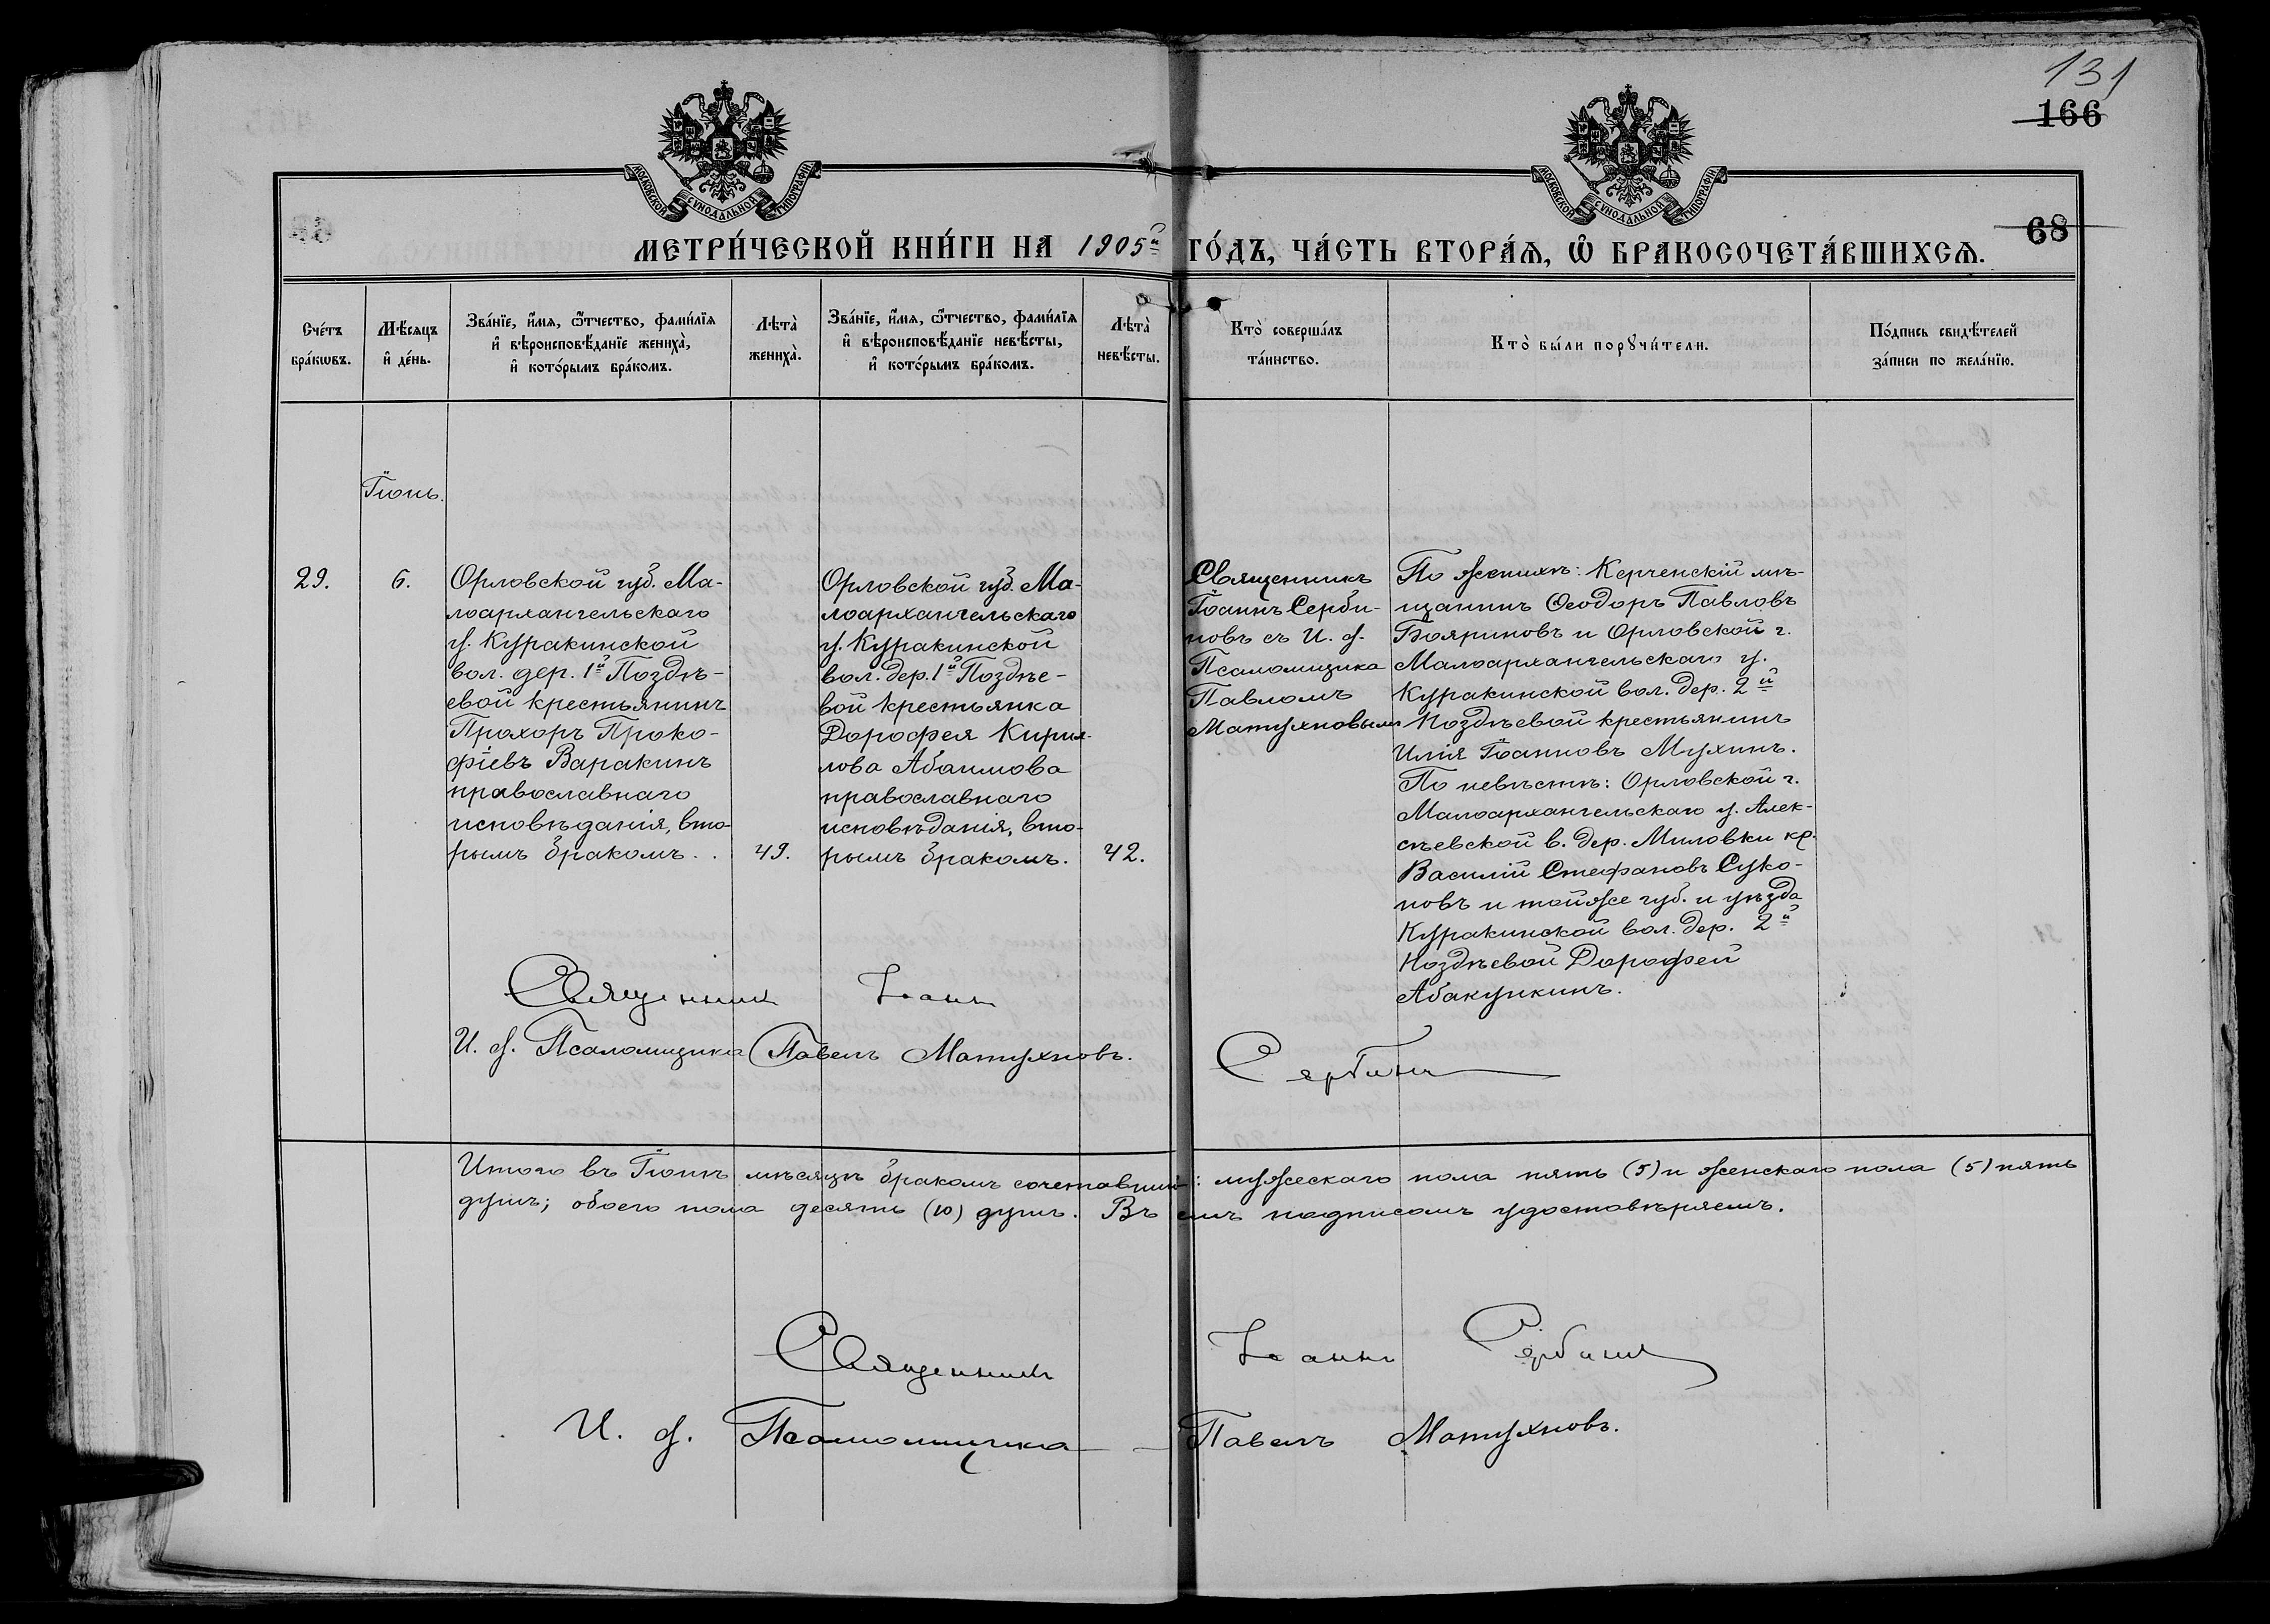 131
166
68
МОСКОВСКОЙ СѴНОДАЛЬНОЙ ТИПОГРАФІИ
МОСКОВСКОЙ СѴНОДАЛЬНОЙ ТИПОГРАФІИ
МЕТРИ́ЧЕСКОЙ КНИ́ГИ НА 1905й ГО́ДЪ, ЧА́СТЬ ВТОРА́Ѧ, Ѽ БРАКОСОЧЕТА́ВШИХСѦ.
Сче́тъ
бра́кѡвъ.
Мѣ́сяцъ
и҆ де́нь.
Зва́нїе, и҆́мя, ѻ҆́тчество, фами́лїя
и҆ вѣроисповѣ́данїе жениха̀,
и҆ кото́рымъ бра́комъ.
Лѣта̀
жениха̀.
Зва́нїе, и҆́мя, ѻ҆́тчество, фами́лїя
и҆ вѣроисповѣ́данїе невѣ́сты,
и҆ кото́рымъ бра́комъ.
Лѣта̀
невѣ́сты.
Кто̀ соверша́лъ
та́инство.
Кто̀ бы́ли порꙋчи́тели.
По́дпись свидѣ́телей
за́писи по жела́нїю.
Іюнь.
29.
6.
Орловской губ. Ма-
лоархангельскаго
у. Куракинской
вол. дер. 1й Поздѣ-
евой крестьянинъ
Прохоръ Проко-
фіевъ Варакинъ
православнаго
исповѣданія, вто-
рымъ бракомъ. .
49.
Орловской губ. Ма-
лоархангельскаго
у. Куракинской
вол. дер. 1й Поздѣе-
вой крестьянка
Дорофея Кирил-
лова Абаимова
православнаго
исповѣданія, вто-
рымъ бракомъ.
42.
Священникъ
Іоаннъ Серби-
новъ съ И. д.
Псаломщика
Павломъ
Матухновымъ
По женихѣ: Керченскій мѣ-
щанинъ Ѳеодоръ Павловъ
Бояриновъ и Орловской г.
Малоархангельскаго у.
Куракинской вол. дер. 2й
Поздѣевой крестьянинъ
Илія Іоанновъ Мухинъ.
По невѣстѣ: Орловской г.
Малоархангельскаго у. Алек-
сѣевской в. дер. Миловки кр.
Василій Стефановъ Суко-
новъ и тойже губ. и уѣзда
Куракинской вол. дер. 2й
Поздѣевой Дорофей
Абакункинъ.
Священникъ Іоаннъ
Сербиновъ
И. д. Псаломщика Павелъ Матухновъ.
Итого въ Іюнѣ мѣсяцѣ бракомъ сочетавши: мужескаго пола пять (5) и женскаго пола (5) пять
душъ; обоего пола десять (10) душъ. Въ емъ подписомъ удостовѣряемъ.
Священникъ Іоаннъ Сербиновъ
И. д. Псаломщика Павелъ Матухновъ.